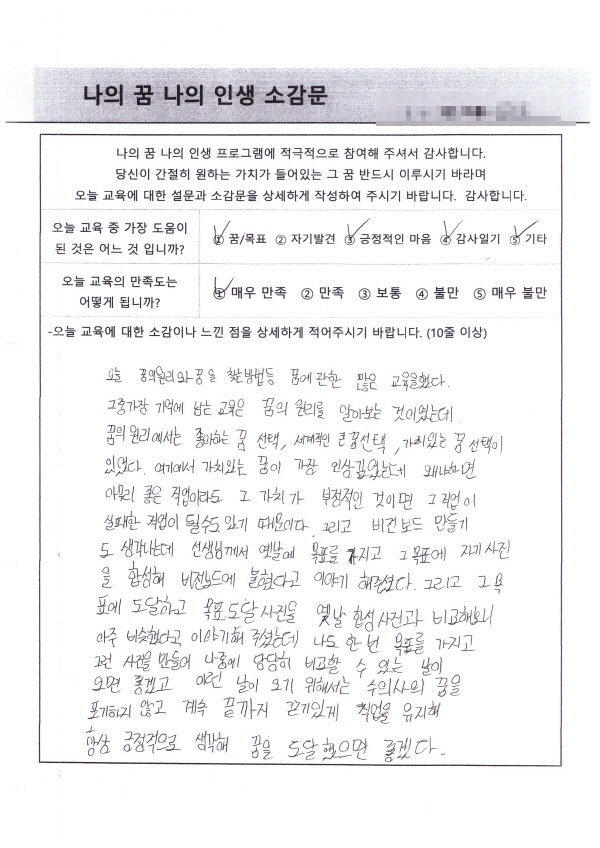 나의 꿈 나의 인생 소감문
나의 꿈 나의 인생 프로그램에 적극적으로 참여해 주셔서 감사합니다.
당신이 간절히 원하는 가치가 들어있는 그 꿈 반드시 이루시기 바라며
오늘 교육에 대한 설문과 소감문을 상세하게 작성하여 주시기 바랍니다. 감사합니다.
오늘 교육 중 가장 도움이
된 것은 어느 것 입니까?
① 꿈/목표 ② 자기발견 ③ 긍정적인 마음 ④ 감사일기 ⑤ 기타
오늘 교육의 만족도는
어떻게 됩니까?
① 매우 만족 ② 만족 ③ 보통 ④ 불만 ⑤ 매우 불만
-오늘 교육에 대한 소감이나 느낀 점을 상세하게 적어주시기 바랍니다. (10줄 이상)
오늘 꿈의원리와 꿈을 찾는방법등 꿈에 관한 많은 교육을했다.
그중가장 기억에 남는 교육은 꿈의 원리를 알아보는 것이였는데
꿈의 원리에서는 좋아하는 꿈 선택, 세계적인 큰꿈선택, 가치있는 꿈 선택이
있었다. 여기에서 가치있는 꿈이 가장 인상깊었는데 왜냐하면
아무리 좋은 직업이라도 그 가치가 부정적인 것이면 그 직업이
실패한 직업이 될수도 있기 때문이다. 그리고 비전보드 만들기
도 생각나는데 선생님께서 옛날에 목표를 가지고 그 목표에 자기 사진
을 합성해 비전보드에 붙혔다고 이야기 해주셨다. 그리고 그 목
표에 도달하고 목표 도달 사진을 옛날 합성사진과 비교해보니
아주 비슷했다고 이야기해 주셨는데 나도 한 번 목표를 가지고
그런 사진을 만들어 나중에 당당히 비교할 수 있는 날이
오면 좋겠고 이런 날이 오기 위해서는 수의사의 꿈을
포기하지 않고 계속 끝까지 끈기있게 직업을 유지해
항상 긍정적으로 생각해 꿈을 도달했으면 좋겠다.